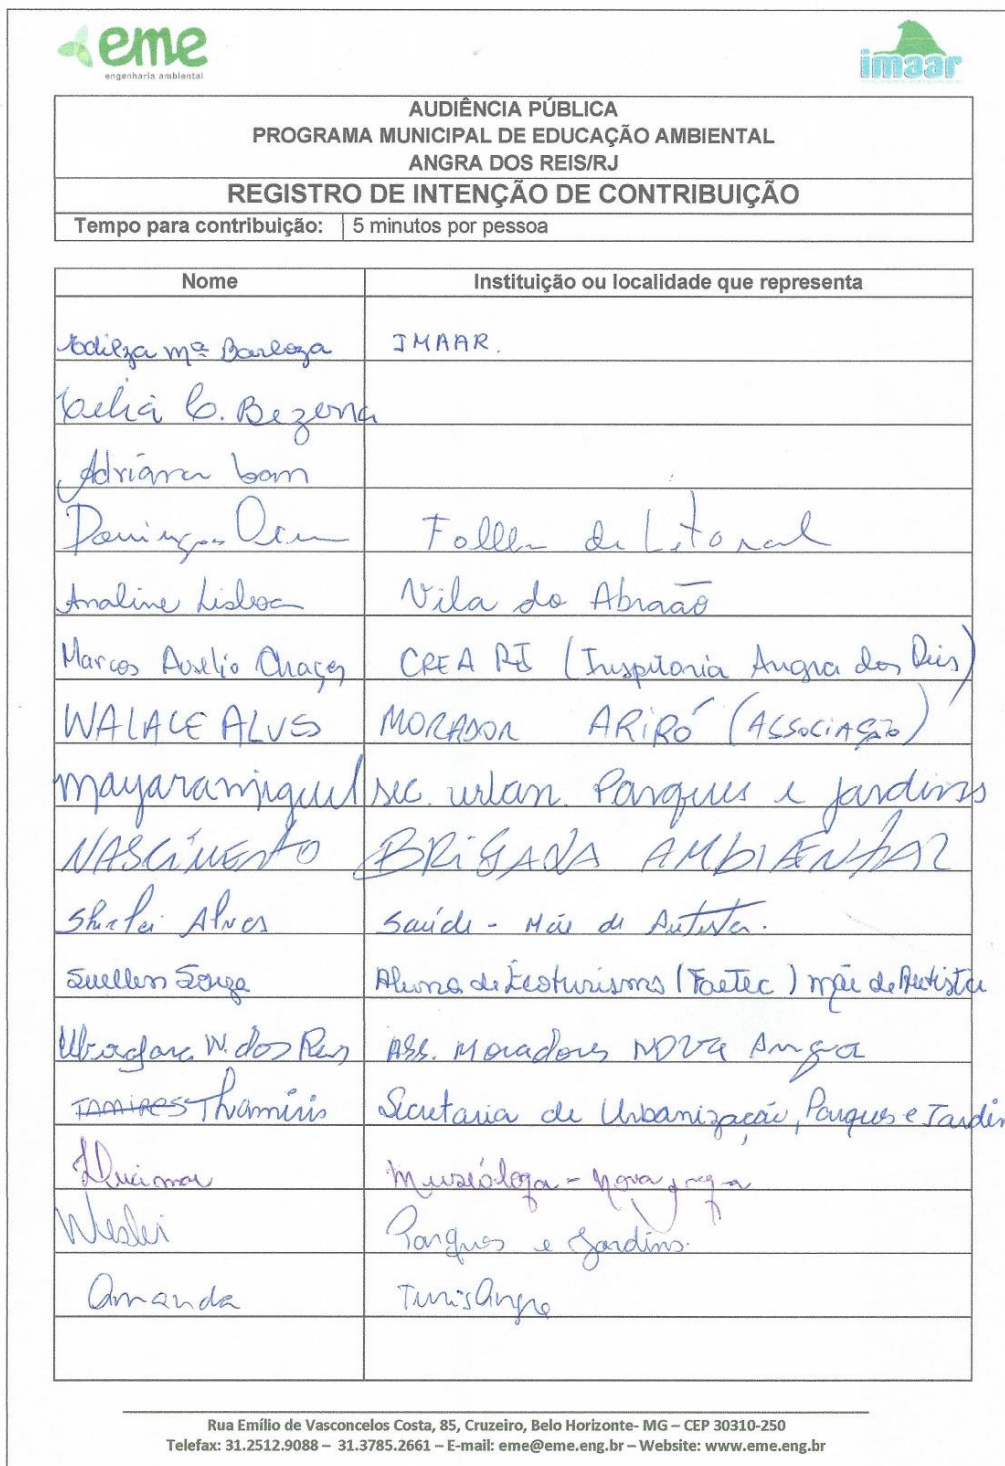 eme
engenharia ambiental
imaar
AUDIÊNCIA PÚBLICA
PROGRAMA MUNICIPAL DE EDUCAÇÃO AMBIENTAL
ANGRA DOS REIS/RJ
REGISTRO DE INTENÇÃO DE CONTRIBUIÇÃO
Tempo para contribuição: 5 minutos por pessoa
Nome Instituição ou localidade que representa
Mª Barboza IMAAR.
Célia C. Bezerra
Adriana bom
Domingos de Litoral
Analine Lisboa Vila do Abraão
Marcos Aurélio Chagas CREA RJ (Inspitoria Angra dos Reis)
WALACE ALVS MORADOR ARIRÓ (ASSOCIAÇÃO)
mayara miguel sec. urban. Parques e jardins
NASCIMENTO BRIGADA AMBIENTAL
Alves Saúde - Mãe de Autista.
Suellen Souza Aluna de Ecoturismo (Faetec) mãe de Autista
W. dos Reis ASS. Moradores NOVA Angra
TAMIRES Thamiris Secretaria de Urbanização, Parques e Jardin
Museóloga - nova angra
Weslei Parques e Jardins.
Amanda TurisAngra
Rua Emílio de Vasconcelos Costa, 85, Cruzeiro, Belo Horizonte- MG – CEP 30310-250
Telefax: 31.2512.9088 – 31.3785.2661 – E-mail: eme@eme.eng.br – Website: www.eme.eng.br